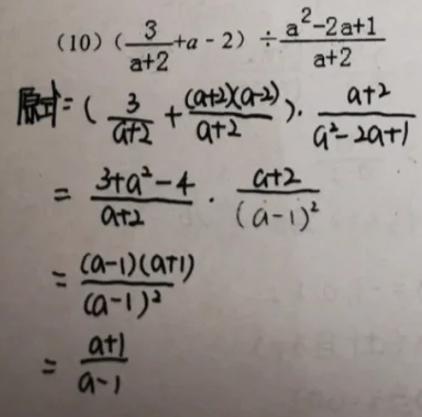 (10) (3/(a+2)+a-2) ÷ (a²-2a+1)/(a+2)
原式=(3/(a+2) + (a+2)(a-2)/(a+2))·(a+2)/(a²-2a+1)
= (3+a²-4)/(a+2) · (a+2)/(a-1)²
= (a-1)(a+1)/(a-1)²
= (a+1)/(a-1)